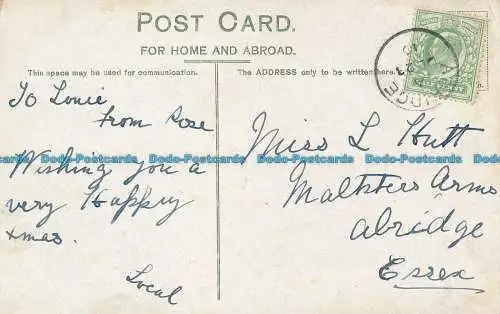 POST CARD.
FOR HOME AND ABROAD.
This space may be used for communication.
The ADDRESS only to be written here.
To Louie
from Rose
Wishing you a
very Happy
xmas.
Local
Miss L Hutt
Maltsters Arms
abridge
Essex
Dodo-Postcards Dodo-Postcards Dodo-Postcards Dodo-Postcards Dodo-Postcards